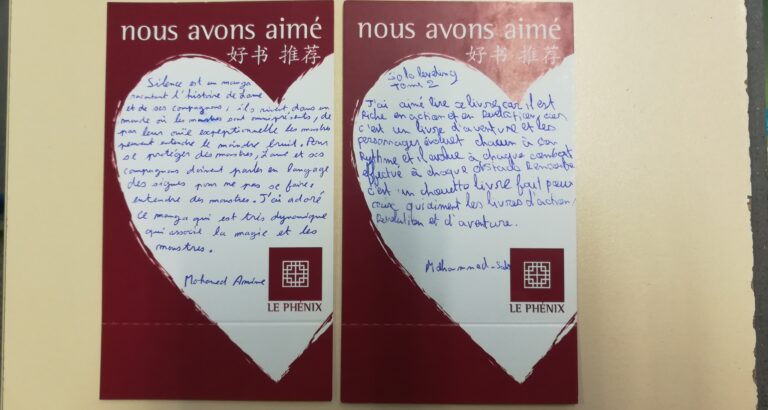 nous avons aimé
好书 推荐
Silence est un manga
racontant l'histoire de Lame
et de ses compagnons, ils vivent dans un
monde où les monstres sont omniprésents, de
par leur ouïe exceptionnelle les monstres
peuvent entendre le moindre bruit. Pour
se protéger des monstres, Lame et ses
compagnons doivent parler en langage
des signes pour ne pas se faire
entendre des monstres. J'ai adoré
ce manga qui est très dynamique
qui associe la magie et les
monstres.
Mohamed Amine
LE PHÉNIX
nous avons aimé
好书 推荐
Solo leveling
Tome 2
J'ai aimé lire se livre car il est
Riche en action et en évolution, car
c'est un livre d'aventure et les
personnages évoluet chacun à son
Rythme et évolue à chaque combat
effectué à chaque obstacle Rencontré
c'est un chouette livre fait pour
ceux qui aiment les livres d'action,
évolution et d'aventure.
Mohammed-
LE PHÉNIX